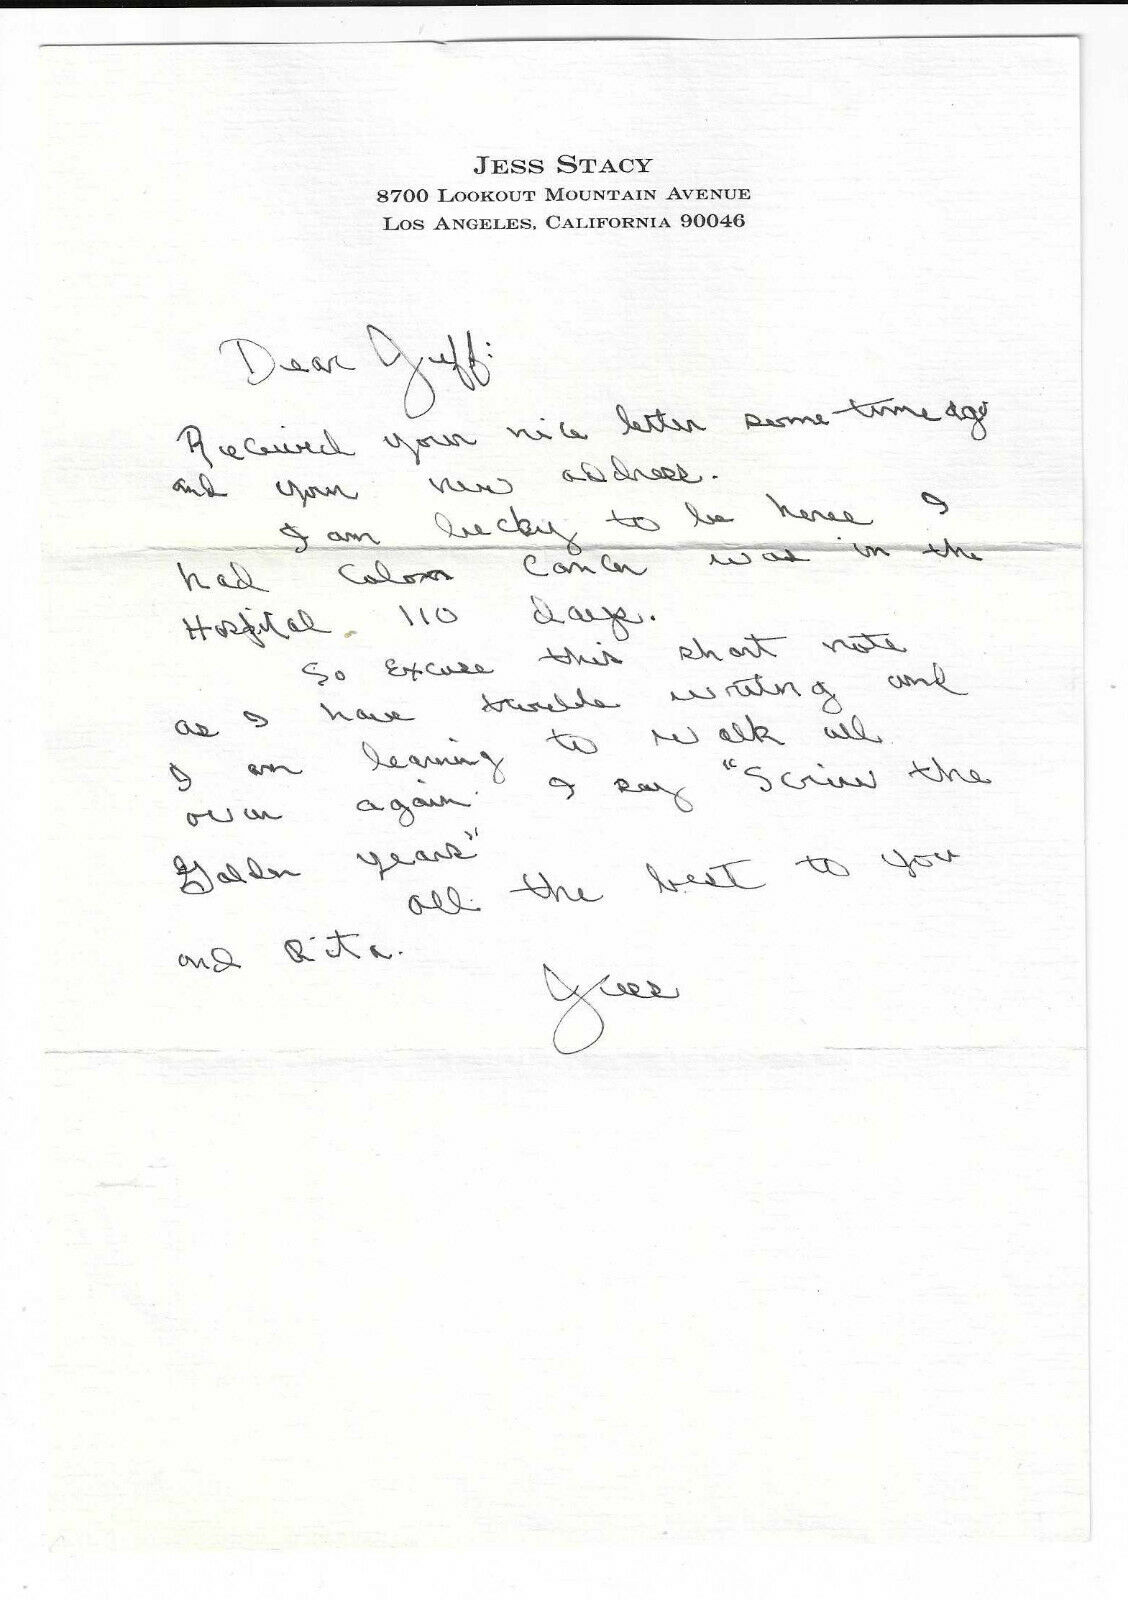 JESS STACY
8700 LOOKOUT MOUNTAIN AVENUE
LOS ANGELES, CALIFORNIA 90046
Dear Jeff:
Received your nice letter some-time ago
and your new address.
I am lucky to be here I
had Colon Cancer was in the
Hospital 110 days.
So excuse this short note
as I have trouble writing and
I am learning to walk all
over again. I say "Screw the
Golden years"
all the best to you
and Rita.
Jess